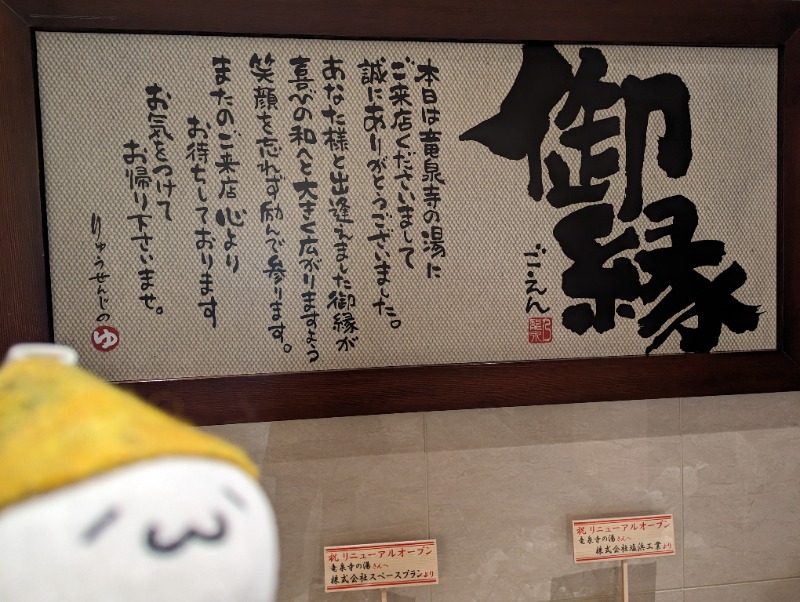 御縁
ごえん
本日は竜泉寺の湯に
ご来店くださいまして
誠にありがとうございました。
あなた様と出逢えました御縁が
喜びの和へと大きく広がりますよう
笑顔を忘れず励んで参ります。
またのご来店 心より
お待ちしております
お気をつけて
お帰り下さいませ。
りゅうせんじの
ゆ
祝 リニューアルオープン
竜泉寺の湯さんへ
株式会社スペースプランより
祝 リニューアルオープン
竜泉寺の湯さんへ
株式会社塩浜工業より